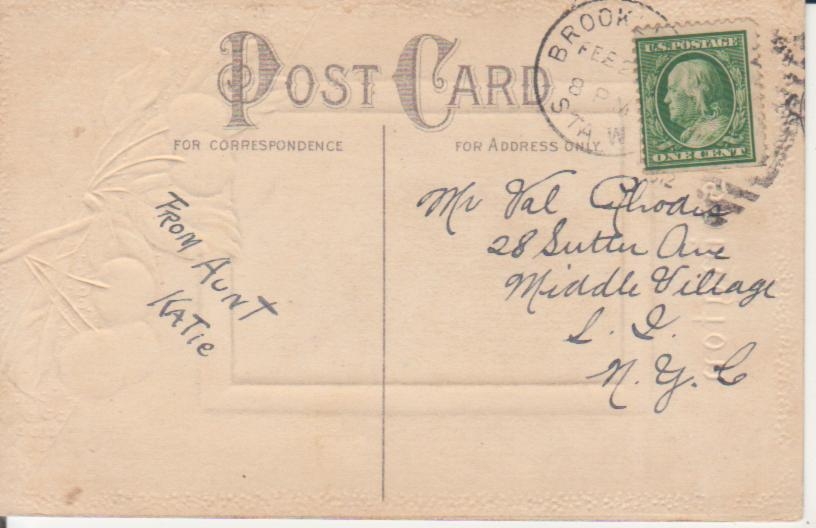 POST CARD
FOR CORRESPONDENCE
FOR ADDRESS ONLY
BROOK
FEB 2
8 PM
STA. W
U.S. POSTAGE
ONE CENT
FROM AUNT
KATIE
Mr Val Rhodis
28 Sutter Ave
Middle Village
L. I.
N. Y. C